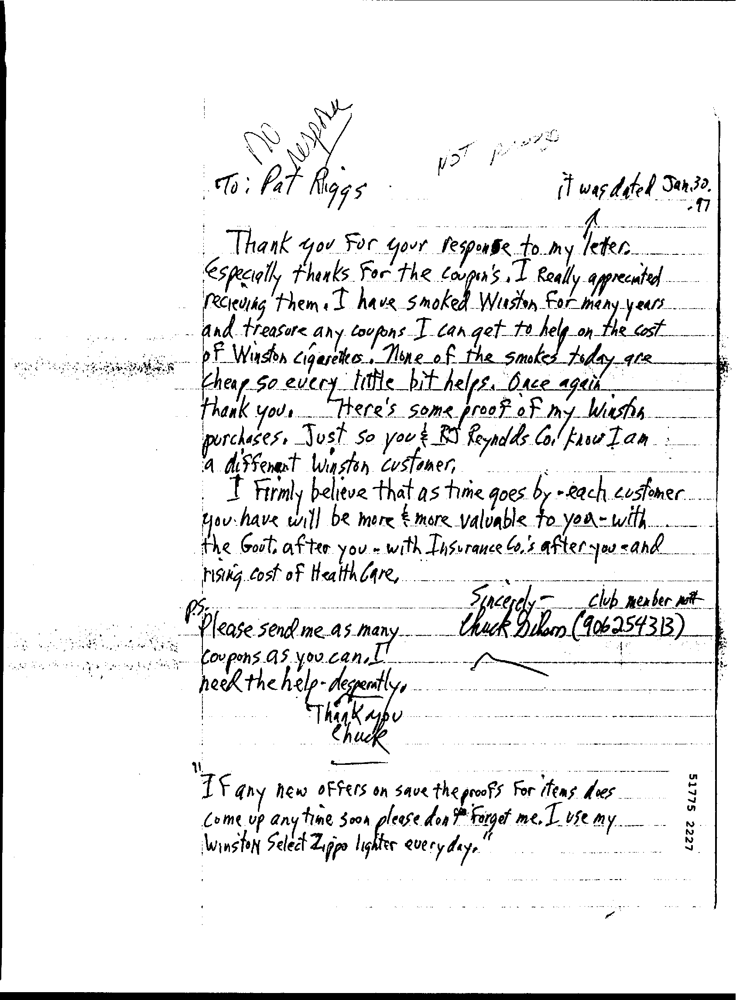 No
response
NOT
To: Pat Riggs
it was dated Jan. 30.
-97
Thank you For your response to my letter.
Especially thanks For the coupon's. I Really appreciated
recieving them. I have smoked Winston For many years
and treasure any coupons I can get to help on the cost
of Winston cigarettes. None of the smokes today are
cheap so every little bit helps. Once again
thank you. Here's some proof of my Winston
purchases. Just so you & RJ Reynolds Co. know I am
a different Winston customer.
I Firmly believe that as time goes by - each customer
you have will be more & more valuable to you - with
the Govt. after you - with Insurance Co.'s after you - and
rising cost of Health Care.
Sincerely - club member
Chuck (906254313)
P.S.
Please send me as many
coupons as you can. I
need the help - desperatly.
Thank you
Chuck
"IF any new offers on save the proofs For items does
come up any time soon please don't Forget me. I use my
Winston Select Zippo lighter every day."
51775 2227